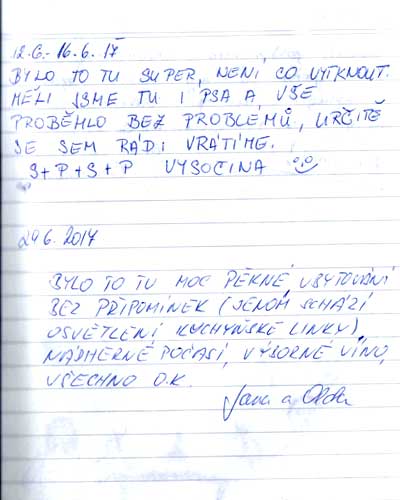 12.6.-16.6.17
BYLO TO TU SUPER, NENÍ, CO VYTKNOUT.
MĚLI JSME TU I PSA A VŠE
PROBĚHLO BEZ PROBLEMŮ, URČITĚ
SE SEM RÁDI VRÁTÍME.
S+P+S+P VYSOČINA
29.6. 2017
BYLO TO TU MOC PĚKNÉ, UBYTOVÁNÍ
BEZ PŘIPOMÍNEK (JENOM SCHÁZÍ
OSVĚTLENÍ KUCHYŇSKÉ LINKY)
NÁDHERNÉ POČASÍ, VÝBORNÉ VÍNO,
VŠECHNO O.K.
Jana a